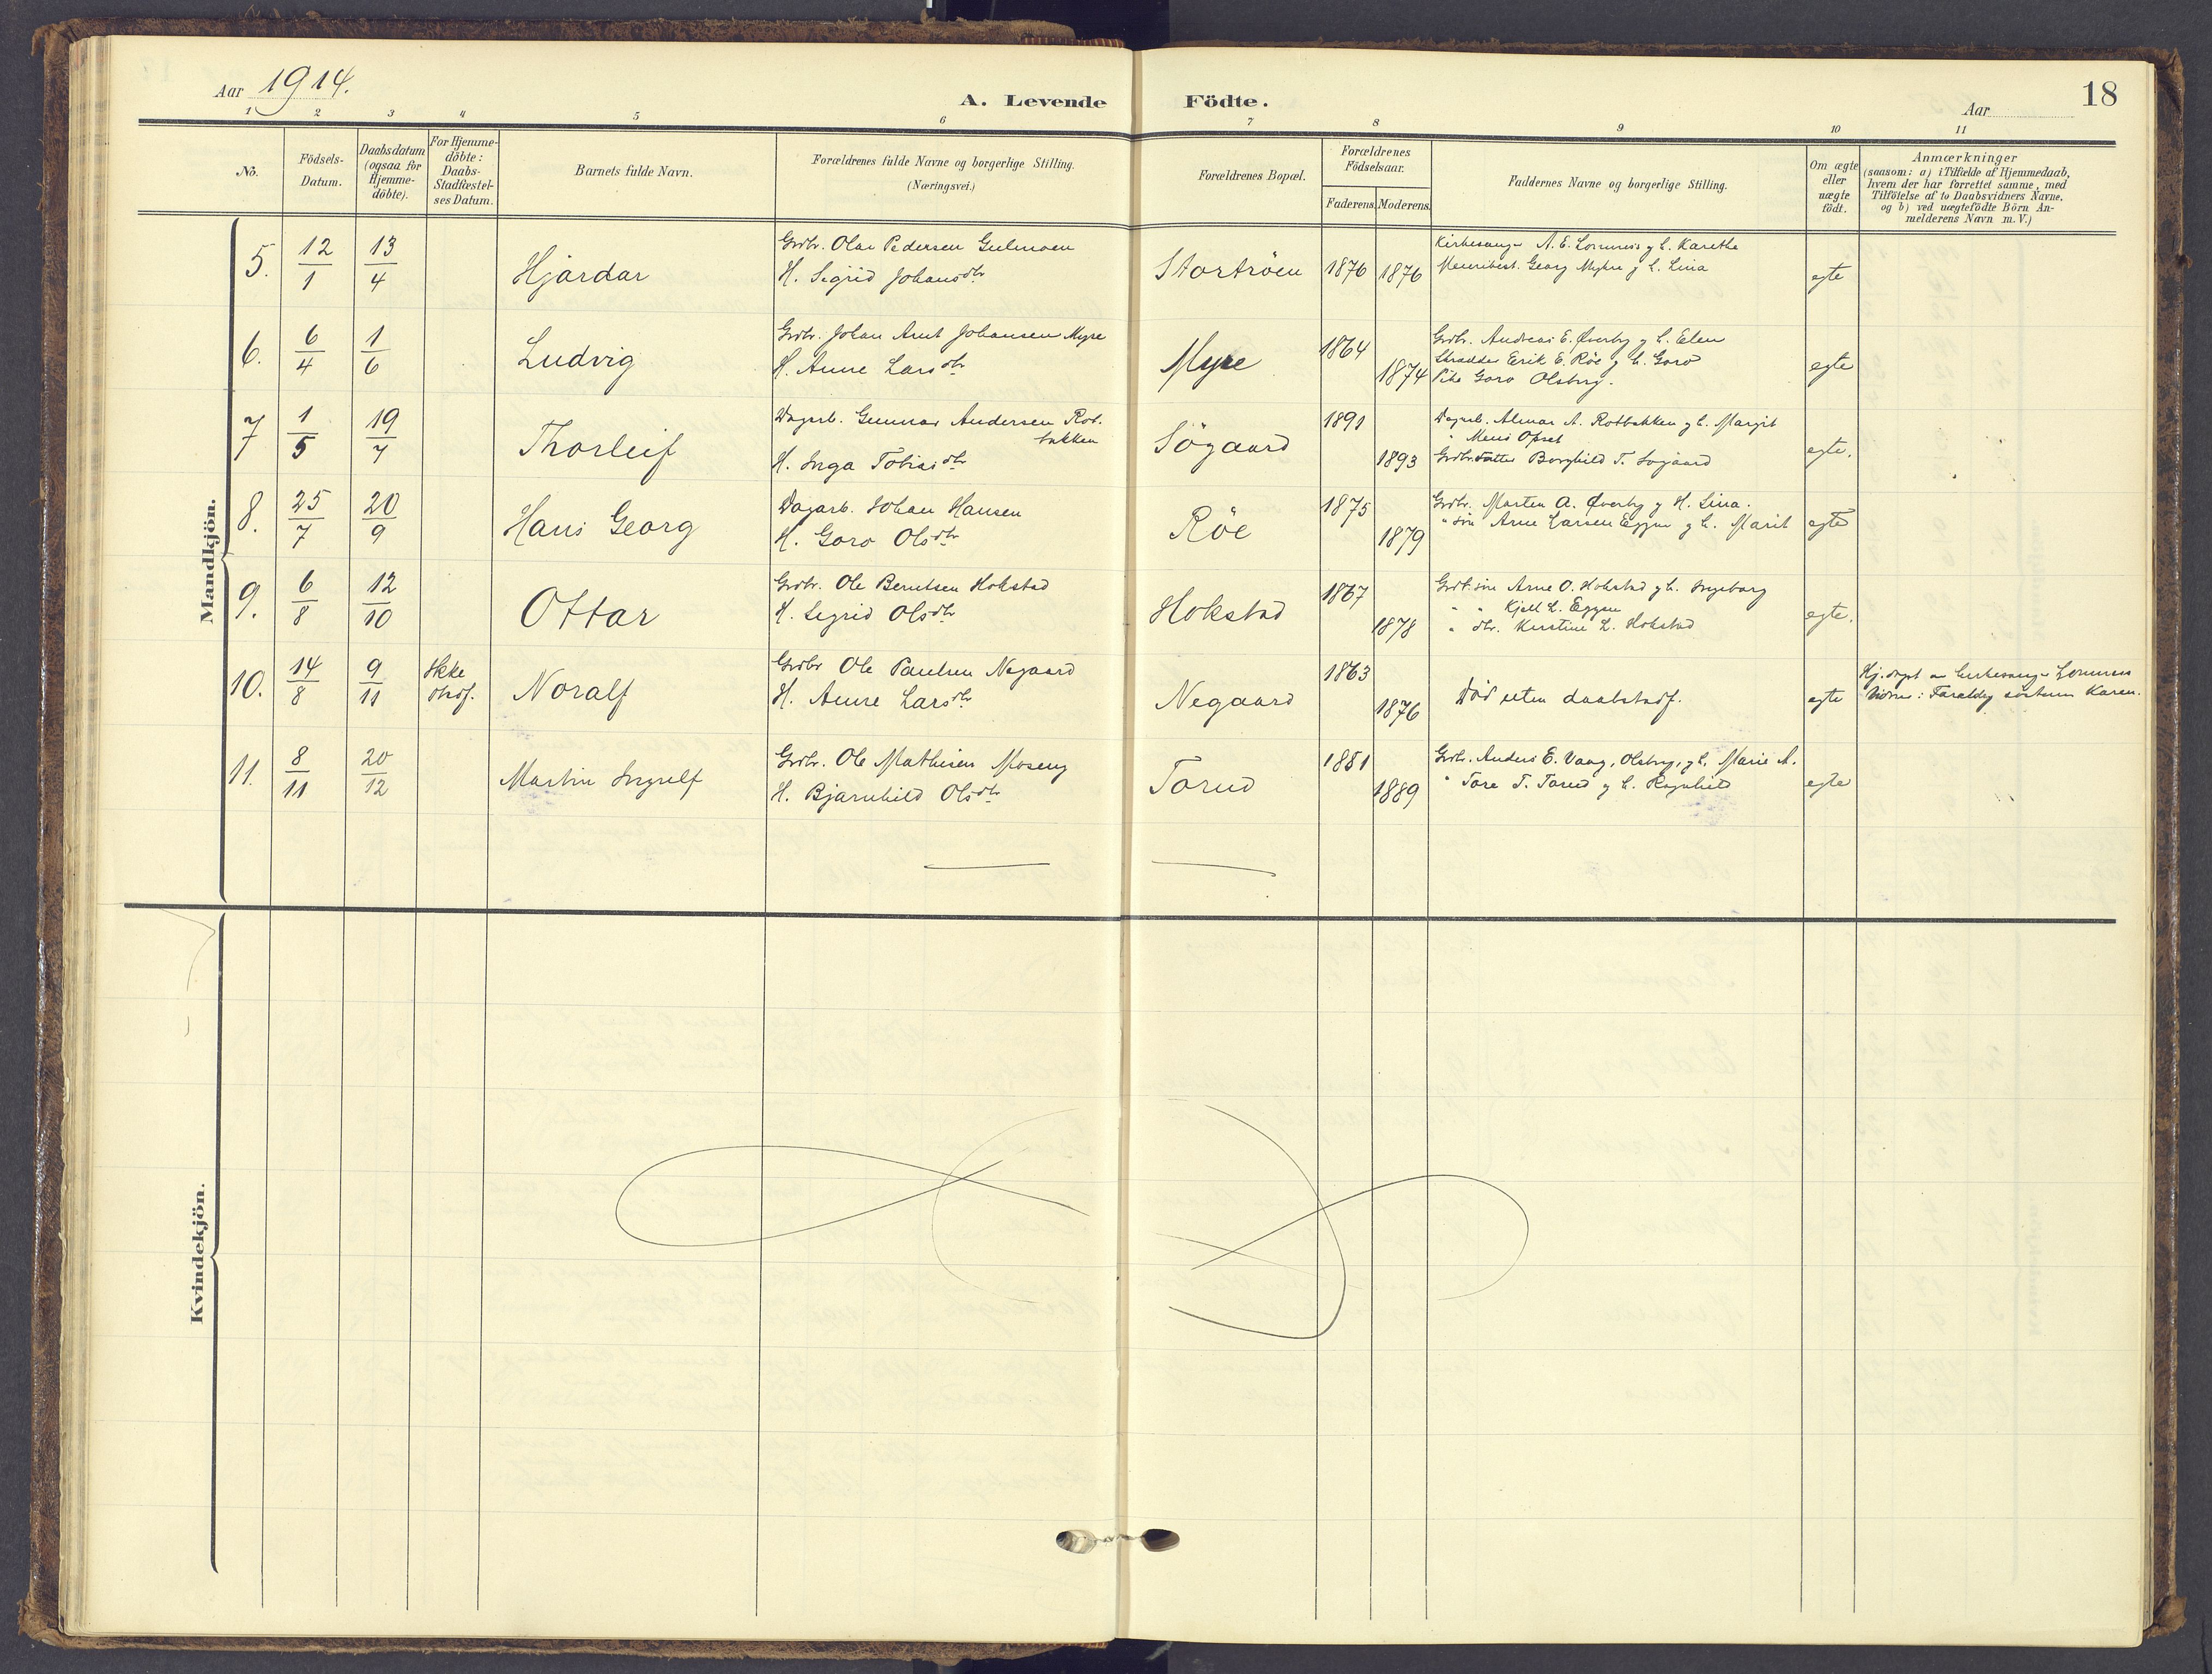 Aar 1914.
A. Levende Födte.
Aar
18
1 2 3 4 5 6 7 8 9 10 11
No.
Födsels-Datum.
Daabsdatum (ogsaa for Hjemme-döbte).
For Hjemme-döbte: Daabs-Stadfæstel-ses Datum.
Barnets fulde Navn.
Forældrenes fulde Navne og borgerlige Stilling.
(Næringsvei.)
Forældrenes Bopæl.
Forældrenes Födselsaar.
Faderens. Moderens.
Faddernes Navne og borgerlige Stilling.
Om ægte eller uægte födt.
Anmærkninger
(saasom: a) i Tilfælde af Hjemmedaab,
hvem der har forrettet samme, med
Tilföielse af to Daabsvidners Navne,
og b) ved uægtefödte Börn An-
melderens Navn m. V.)
Mandkjön.
5. 12/1 13/4 Hjördar
Grdbr. Olav Pedersen
H. Sigrid Johansdtr.
Störtröen 1876 1876
Kirkesanger A. E. Lommess og h. Karethe
Meieribest. Georg Myhre og h. Lina
egte
6. 6/4 1/6 Ludvig
Grdbr. Johan Arnt Johansen Myre
H. Anne Larsdtr.
Myre 1864 1874
Grdbr. Andreas E. Øverby og h. Elen
Skrædder Erik E. Røe og h. Goro
Pike Goro Olsbryg.
egte
7 1/5 19/7 Thorleif
Dagarb. Gunnar Andersen Rot-
bakken
H. Inga Tobiasdtr.
Sögaard 1891 1893
Dagarb. Almar A. Rotbakken og h. Margit
" Meus Opset
Grdbr.datter Borghild T. Søgaard
egte.
8. 25/7 20/9 Hans Georg
Dagarb. Johan Hansen
H. Goro Olsdtr.
Röe 1875 1879
Grdbr. Morten A. Øverby og H. Lina.
" søn Arne Larsen Eggen og h. Marit
egte
9. 6/8 12/10 Ottar
Grdbr. Ole Berntsen Hokstad
H. Sigrid Olsdtr.
Hokstad 1867 1878
Grdbr.søn Arne O. Hokstad og h. Ingeborg
" " Kjell L. Eggen
" dtr. Kirstine L. Hokstad
egte.
10. 14/8 9/11 Ikke stadf. Noralf
Grdbr Ole Paulsen Negaard
H. Anne Larsdtr.
Negaard 1863 1876
Död uten daabstadf.
egte
Hj.döpt av kirkesanger Lommess
Vidne: Faraldrog søsteren Karen.
11. 8/11 20/12 Martin Ingulf
Grdbr. Ole Mathisen Moseng
H. Bjarnhild Olsdtr.
Torud 1881 1889
Grdbr. Anders E. Vaag, Olsbryg, og h. Marie A.
" Tore T. Torud og h. Ragnhild
egte
Kvindekjön.